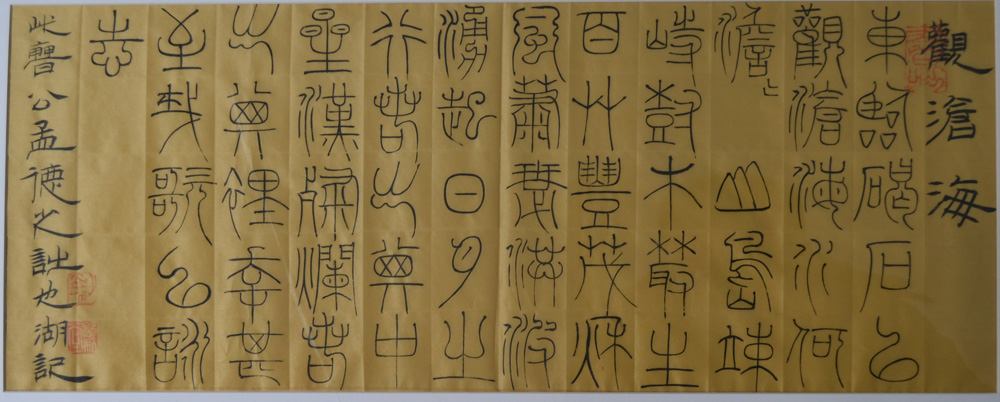 觀滄海
東臨碣石以
觀滄海水何
澹〻山島竦
峙尌木叢生
百艸豐茂秌
風蕭瑟洪波
湧起日月之
行若出其中
星漢燦爛若
出其裡幸甚
至哉歌以詠
志
此曹公孟德之詩也湖記